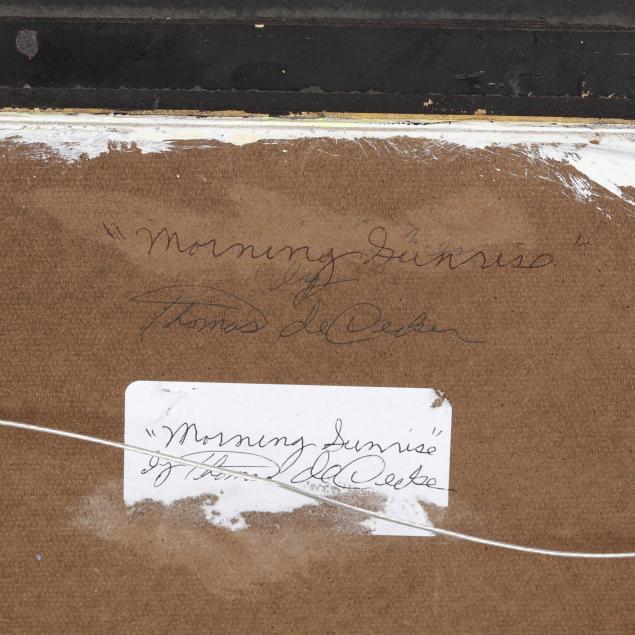 "Morning Sunrise"
by
Thomas deDecker
"Morning Sunrise"
by Thomas deDecker